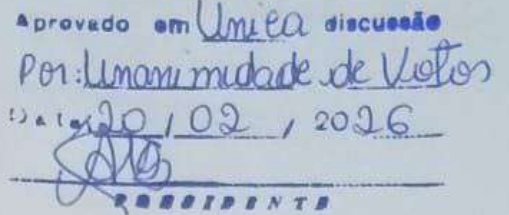 Aprovado em Unica discussão
Por: Unanimidade de Votos
Data 20 / 02 / 2026
PRESIDENTE